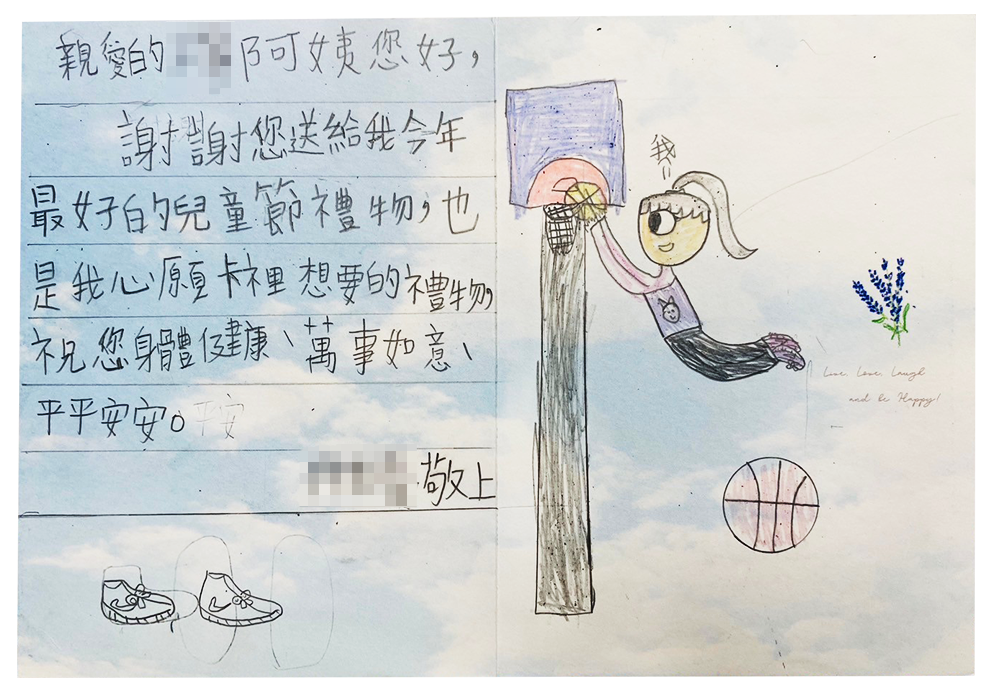 親愛的 阿姨您好，
謝謝您送給我今年
最好的兒童節禮物，也
是我心願卡裡想要的禮物，
祝您身體健康、萬事如意、
平平安安。平安
敬上
我
Live. Love. Laugh
and be Happy!